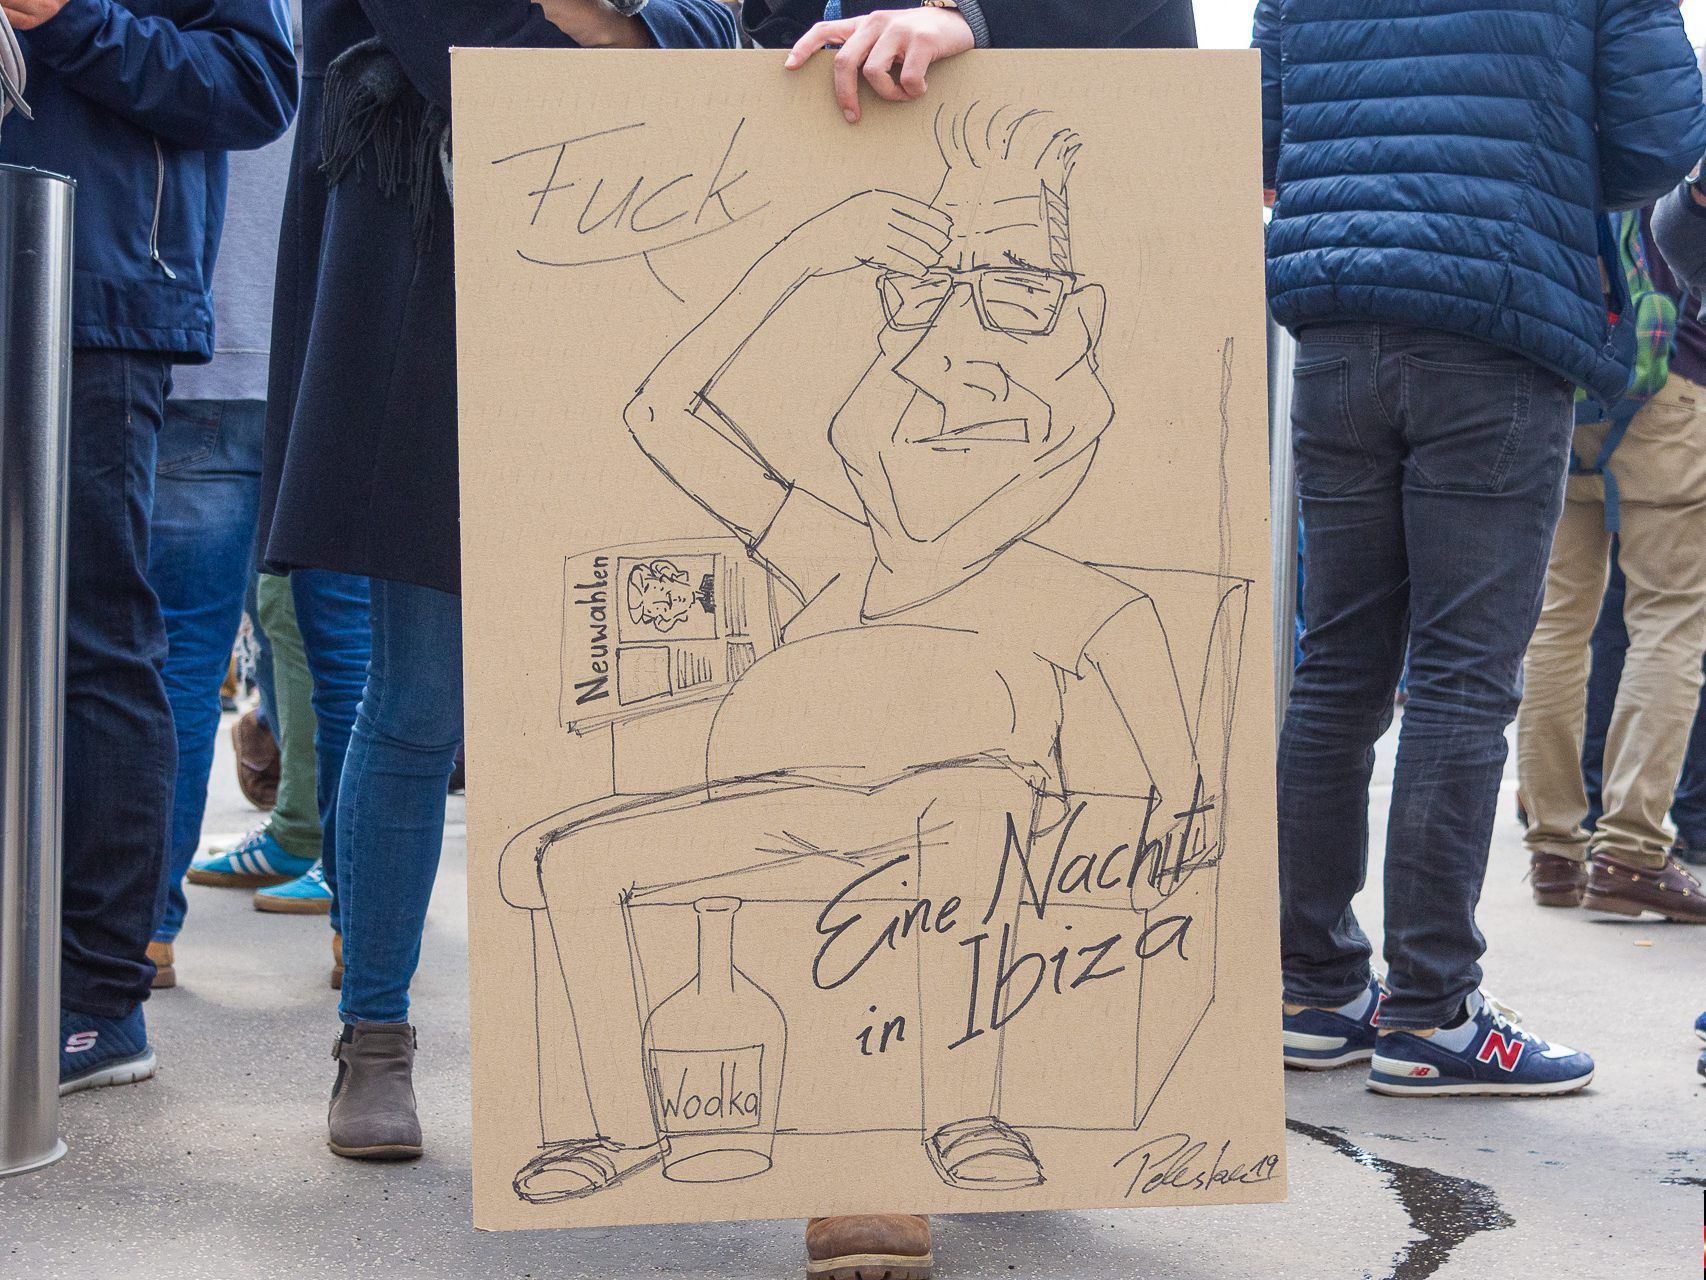 Fuck
Neuwahlen
Eine Nacht
in Ibiza
Wodka
19
S
N
NB